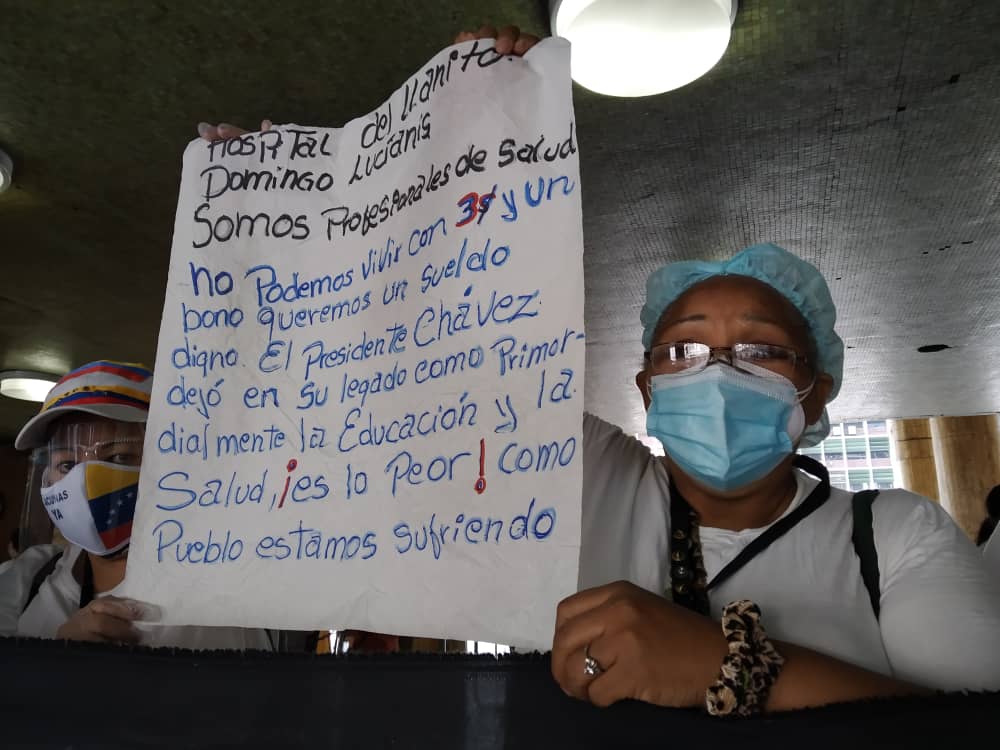 HOSPITAL del LLANITO.
DOMINGO LUCIANIS
SOMOS Profesionales de Salud
no Podemos vivir con 3$ y un
bono queremos un sueldo
digno El Presidente Chávez.
dejó en su legado como Primor-
dialmente la Educación y la.
Salud, ¡es lo Peor! como
Pueblo estamos sufriendo
YA